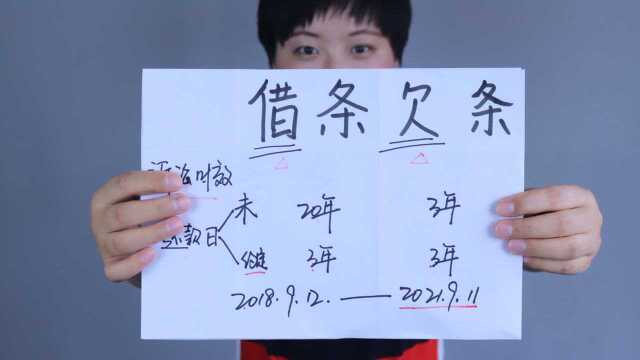 借条 欠条
诉讼时效
未 20年 3年
还款日
约定 3年 3年
2018.9.12. —— 2021.9.11